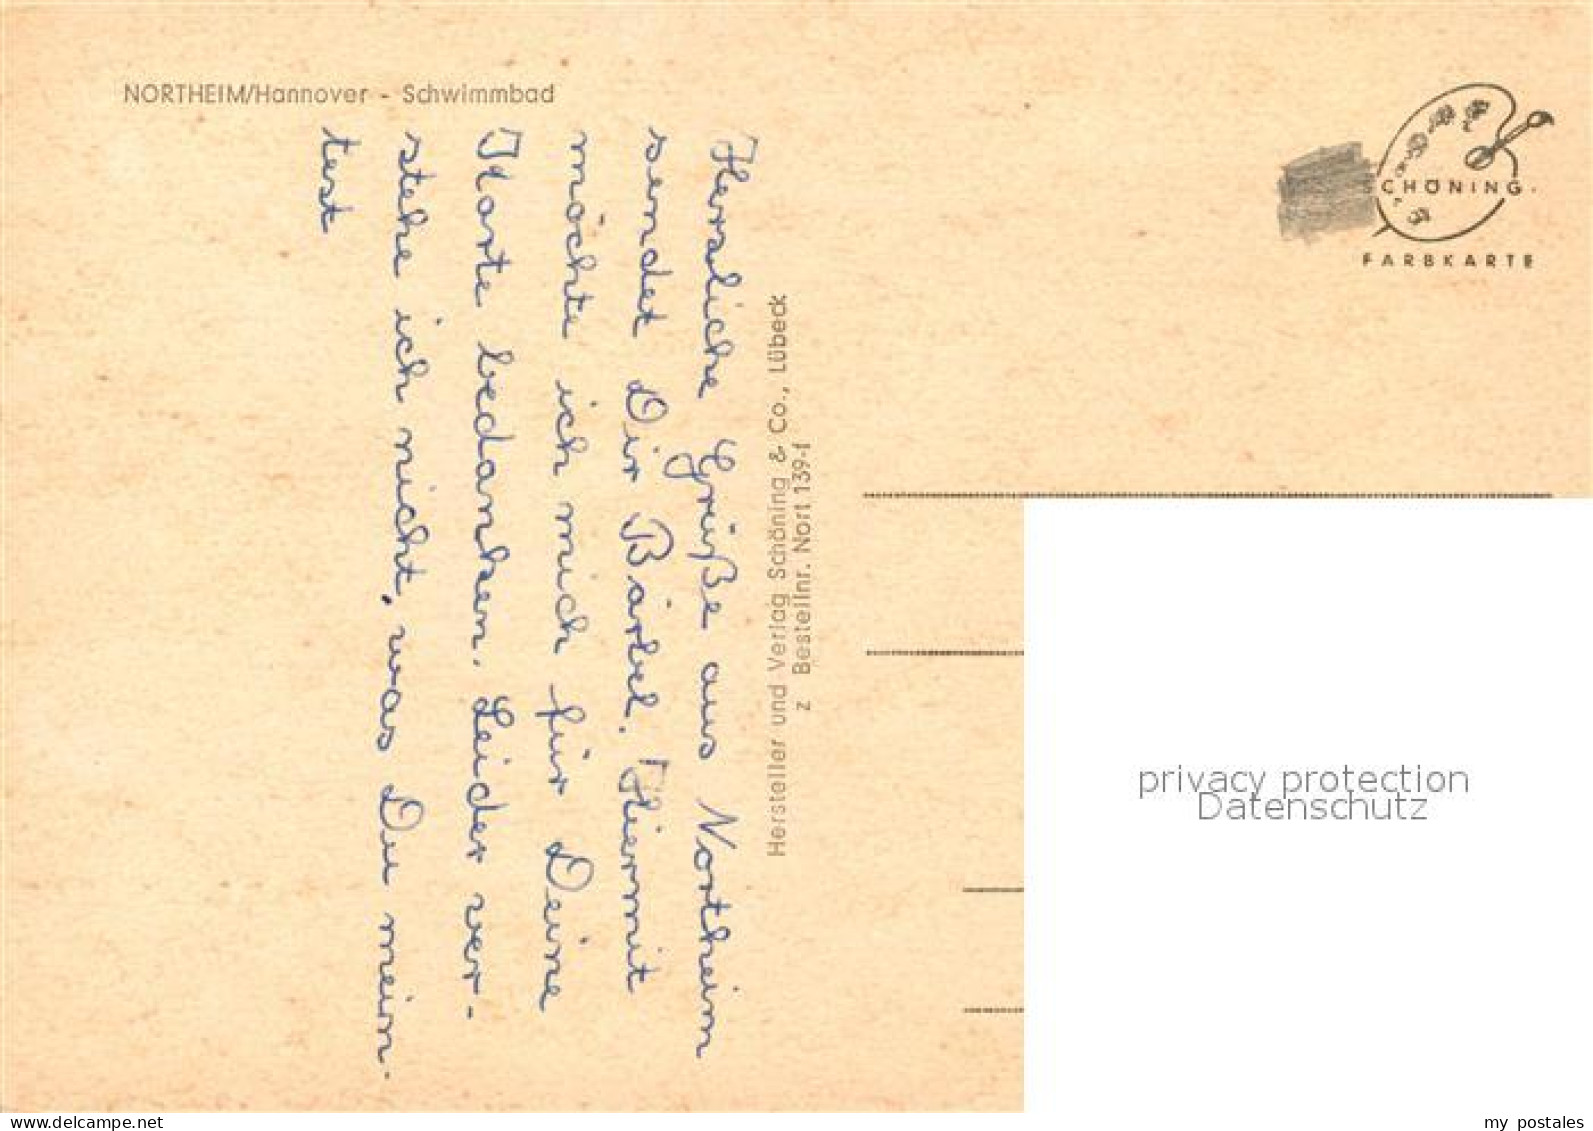 NORTHEIM/Hannover - Schwimmbad
Herzliche Grüße aus Northeim
sendet Dir Bärbel. Hiermit
möchte ich mich für Deine
Karte bedanken. Leider ver-
stehe ich nicht, was Du mein-
test
Hersteller und Verlag Schöning & Co., Lübeck
z Bestellnr. Nort 139-f
SCHÖNING
FARBKARTE
privacy protection
Datenschutz
www.delcampe.net
my_postales